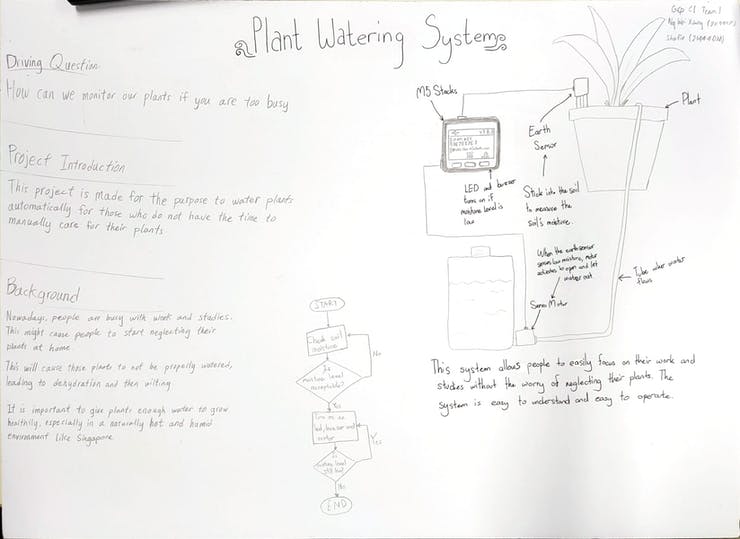 Plant Watering System
Grp C1 Team 1
Driving Question
How can we monitor our plants if you are too busy
Project Introduction
This project is made for the purpose to water plants
automatically for those who do not have the time to
manually care for their plants.
Background
Nowadays, people are busy with work and studies.
This might cause people to start neglecting their
plants at home.
This will cause those plants to not be properly watered,
leading to dehydration and then wilting
It is important to give plants enough water to grow
healthily, especially in a naturally hot and humid
environment like Singapore
START
Check soil
moisture
No
Is
moisture level
acceptable?
Yes
Turn on
led, buzzer and
motor
Yes
Is
moisture level
still low?
No
END
M5 Stacks
LED and buzzer
turns on if
moisture level is
low
Earth
Sensor
Stick into the soil
to measure the
soil's moisture.
Plant
When the earth sensor
senses low moisture, motor
activates to open and let
water out
Servo Motor
Tube where water
flows
This system allows people to easily focus on their work and
studies without the worry of neglecting their plants. The
system is easy to understand and easy to operate.